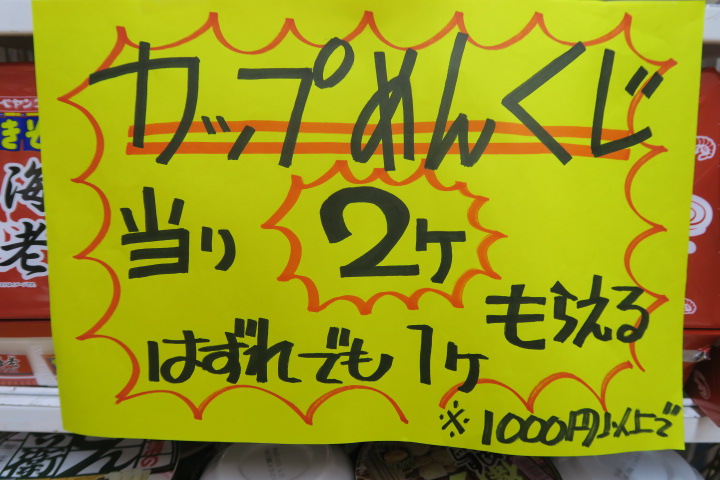 カップめんくじ
当り 2ケ
もらえる
はずれでも 1ケ
※1000円以上で
ペヤング
海老